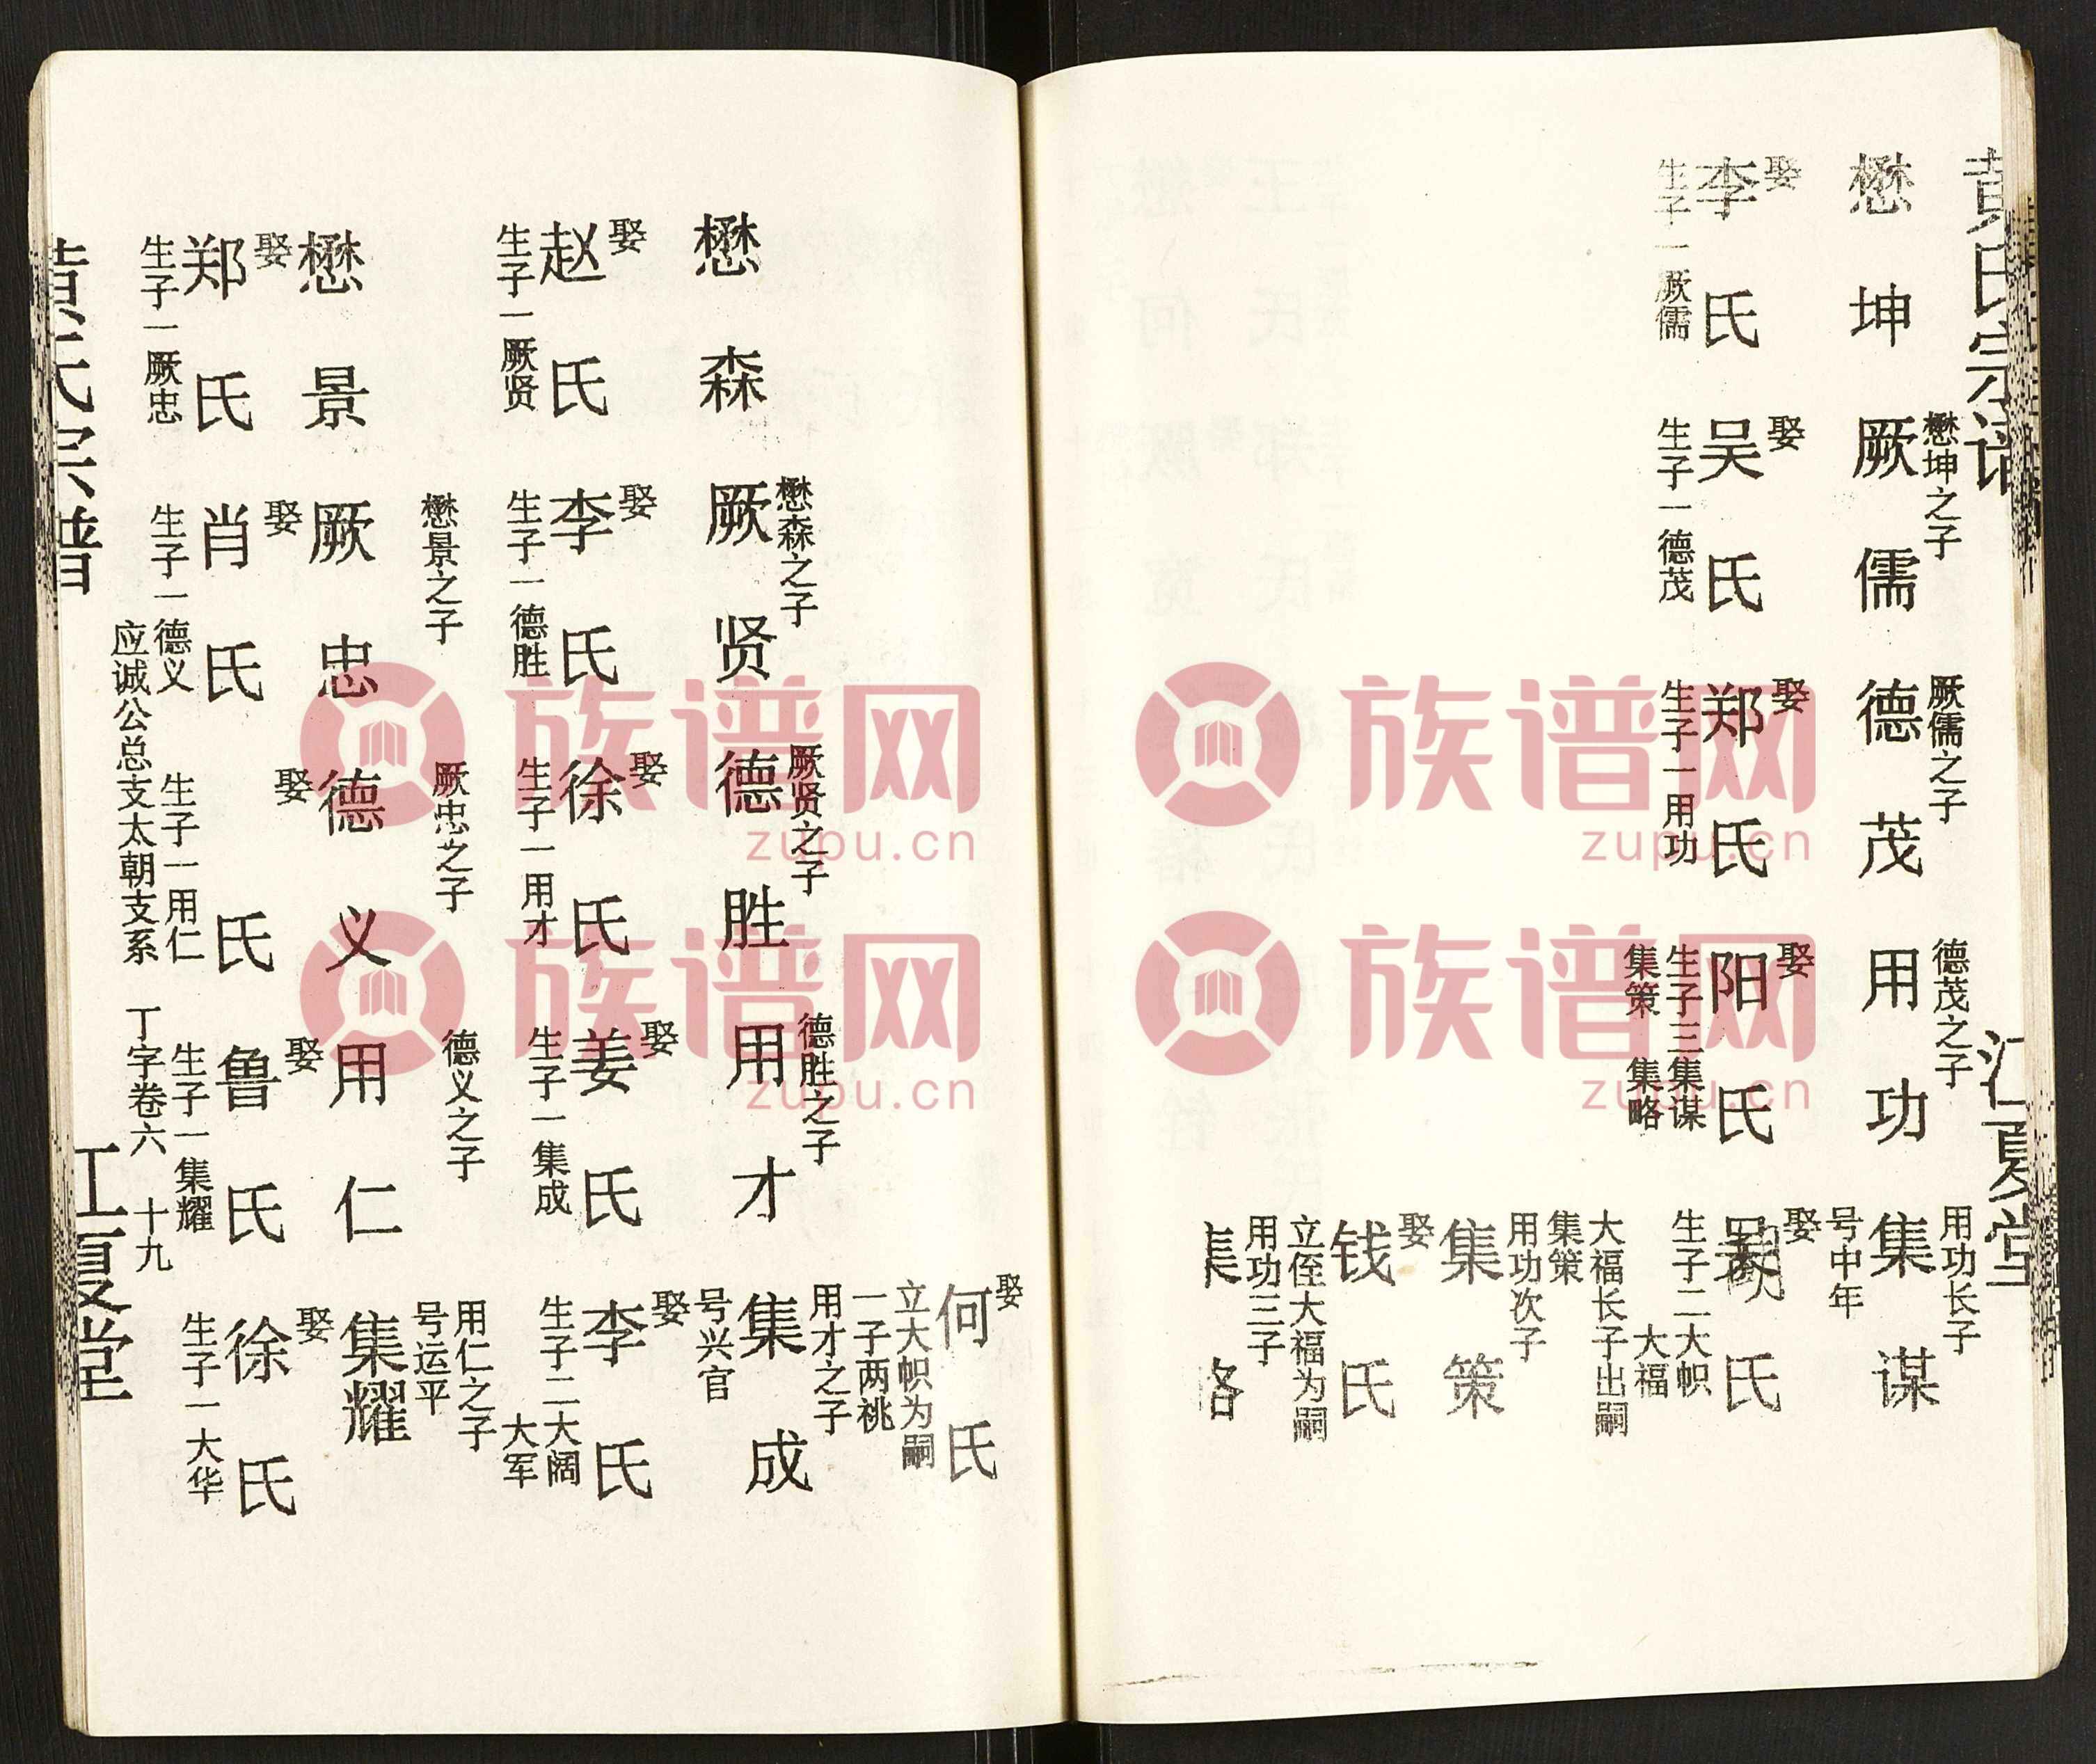 黄氏宗谱
江夏堂
懋坤
娶
李氏
生子一厥儒
懋坤之子
厥儒
娶
吴氏
生子一德茂
厥儒之子
德茂
娶
郑氏
生子一用功
德茂之子
用功
娶
阳氏
生子三集谋
集策 集略
用功长子
集谋
号中年
娶
氏
生子二大帜
大福
大福长子出嗣
集策
用功次子
集策
娶
钱氏
立侄大福为嗣
用功三子
集略
娶
何氏
立大帜为嗣
一子两祧
懋森
娶
赵氏
生子一厥贤
懋森之子
厥贤
娶
李氏
生子一德胜
厥贤之子
德胜
娶
徐氏
生子一用才
德胜之子
用才
娶
姜氏
生子一集成
用才之子
集成
号兴官
娶
李氏
生子二大阔
大军
懋景
娶
郑氏
生子一厥忠
懋景之子
厥忠
娶
肖氏
生子一德义
厥忠之子
德义
娶
氏
生子一用仁
德义之子
用仁
娶
鲁氏
生子一集耀
用仁之子
号运平
集耀
娶
徐氏
生子一大华
应诚公总支太朝支系 丁字卷六 十九
黄氏宗谱
江夏堂
族谱网
zupu.cn
族谱网
zupu.cn
族谱网
zupu.cn
族谱网
zupu.cn